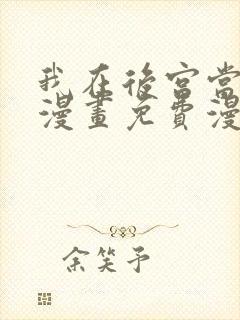 我在後宮當
漫畫免費漫
余笑予